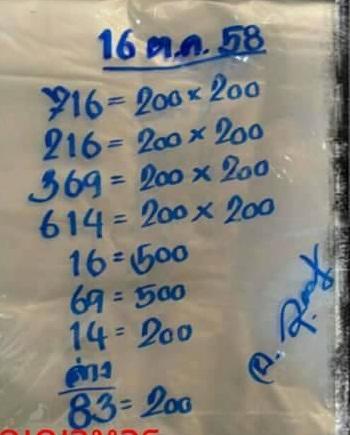 16 ต.ค. 58
716 = 200 × 200
216 = 200 × 200
369 = 200 × 200
614 = 200 × 200
16 = 500
69 = 500
14 = 200
ล่าง
83 = 200